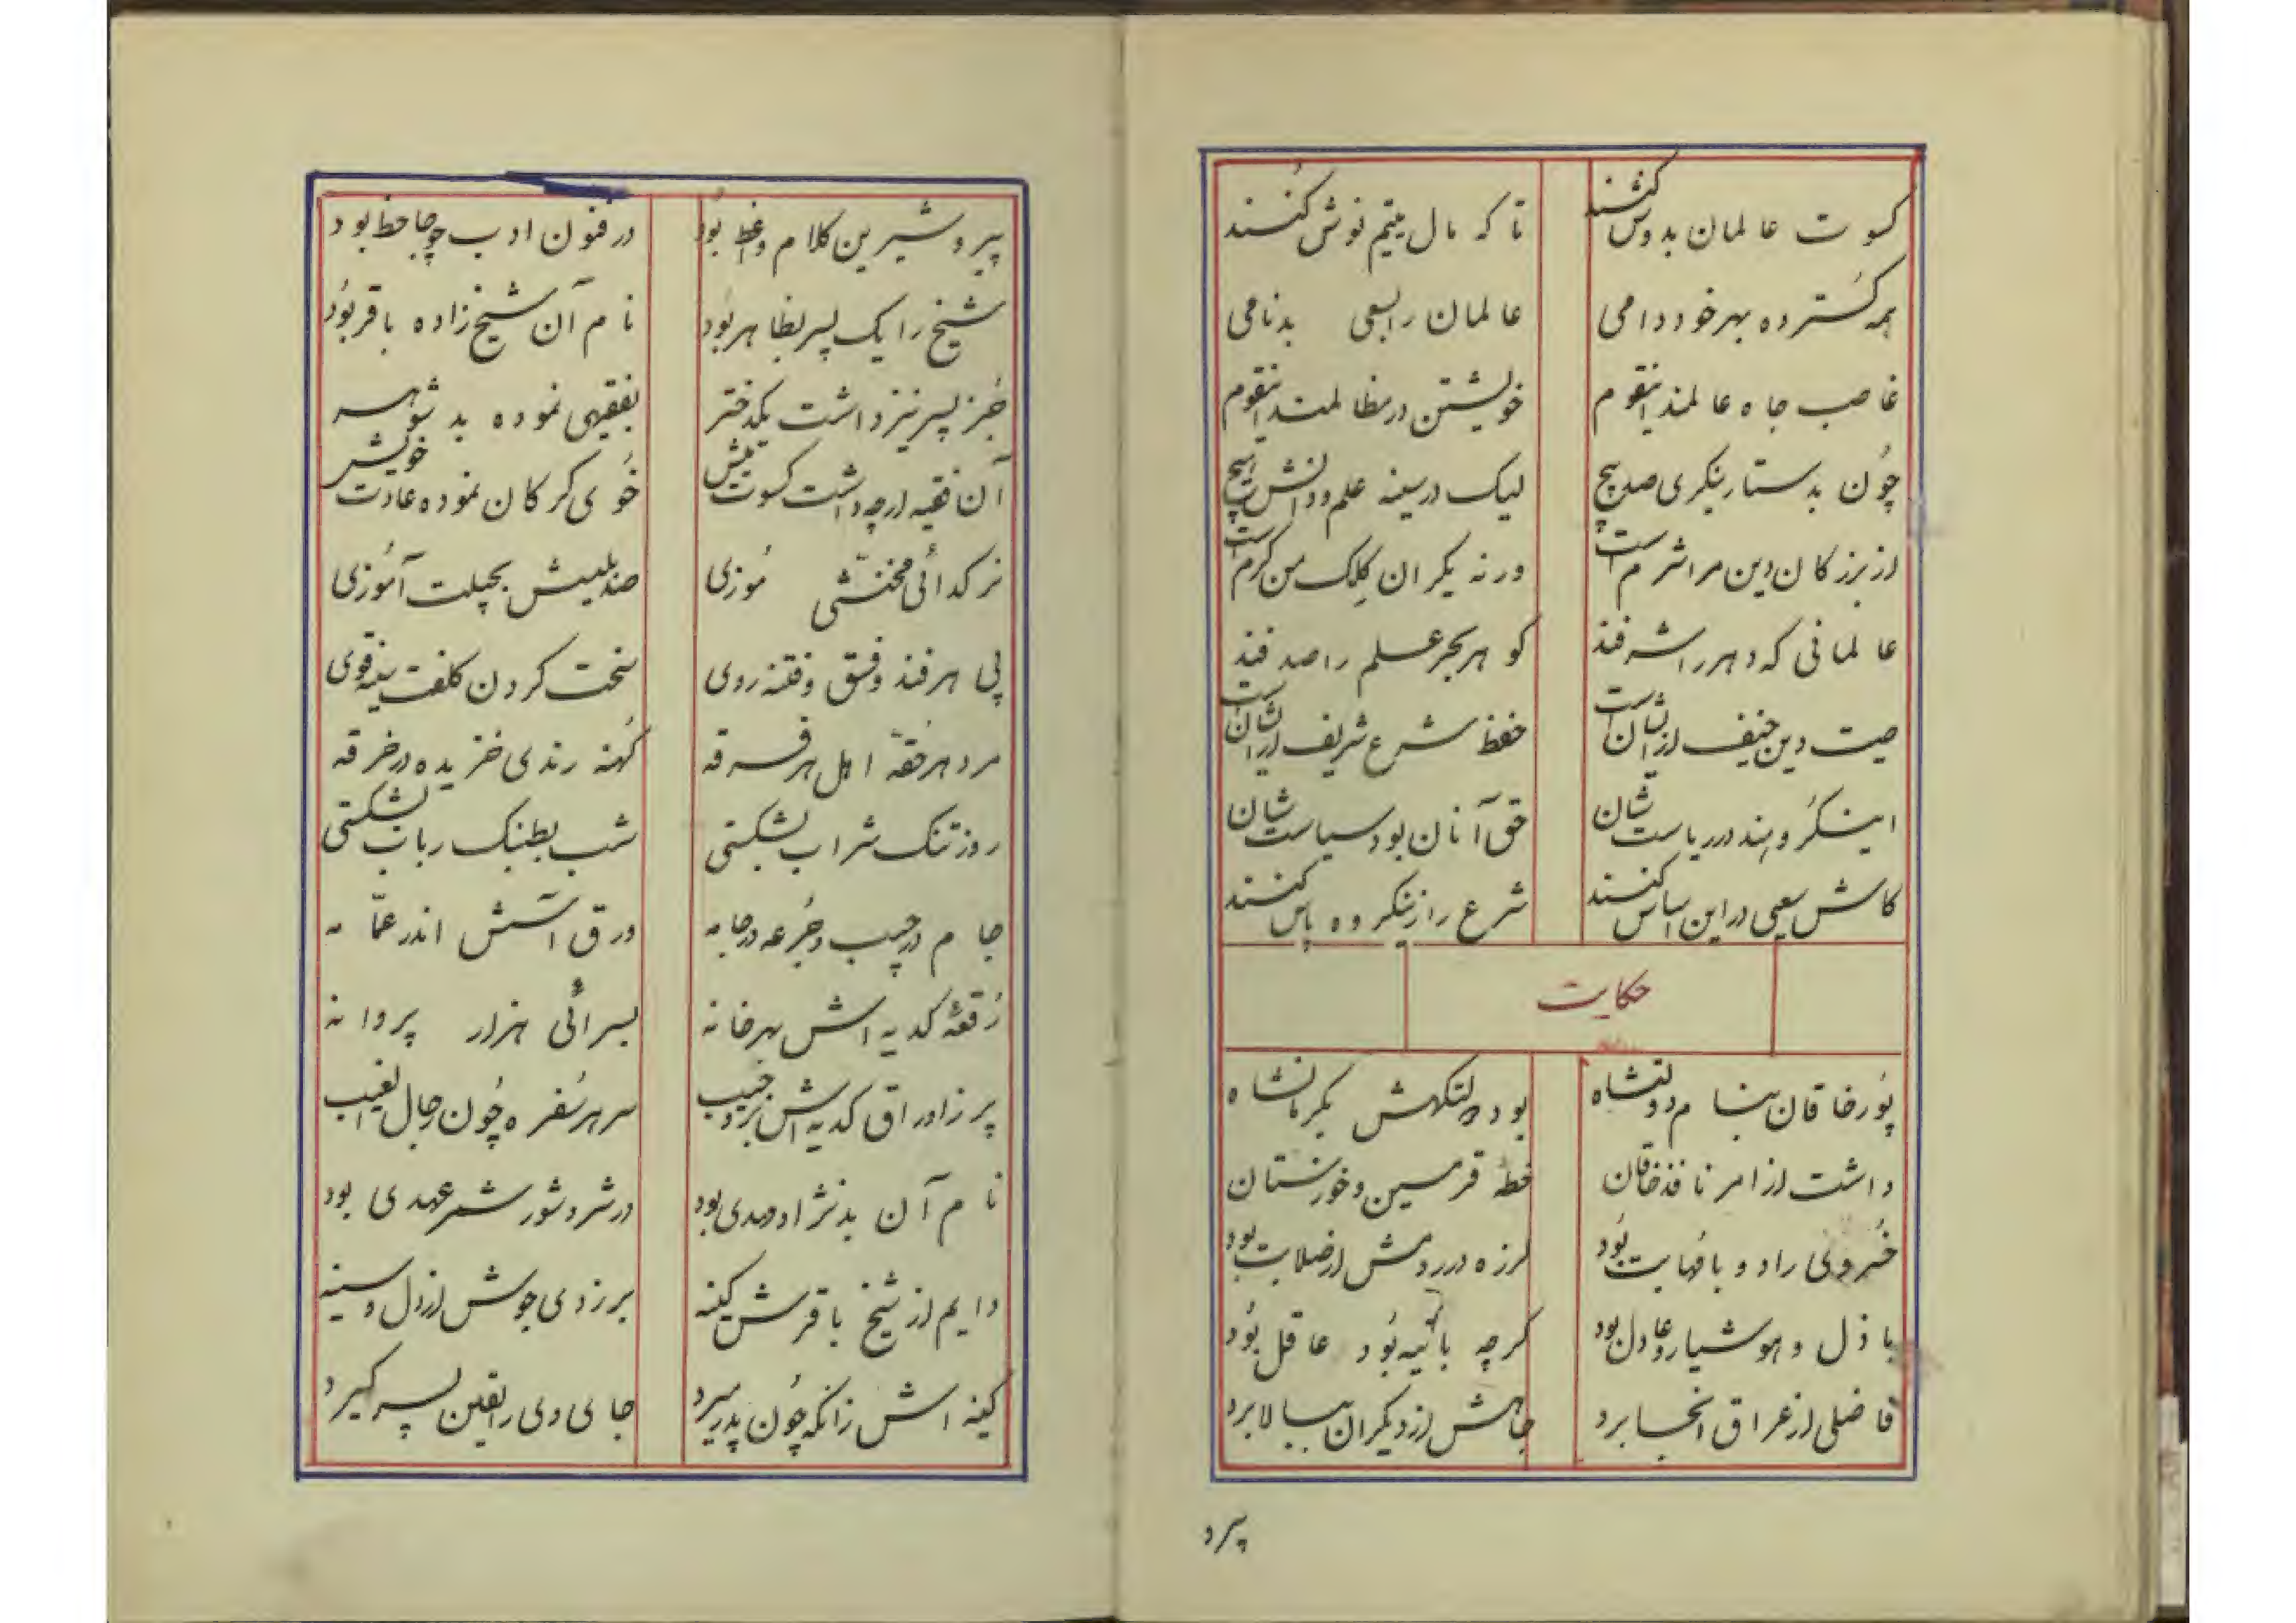 کسوت عالمان بدوش کشند تا که مال یتیم نوش کنند
همه گسترده بهر خود دامی عالمان را بسعی بدنامی
غاصب جاه عالمند اینقوم خویشتن در مظالمند اینقوم
چون بدستار بنکری صد پیچ لیک در سینه علم و دانش هیچ
از بزرکان دین مرا شرم است ورنه یکران کلک من کرم است
عالمانی که دهر را شرفند کوهر بحر علم را صدفند
صیت دین حنیف از ایشان است حفظ شرع شریف از ایشان است
اینکروهند در ریاست شان حق آنان بود سیاست شان
کاش سعی در این اساس کنند شرع را زینکروه پاس کنند
حکایت
پور خاقان بنام دولتشاه بود چون تکیه‌ش بکرمانشاه
داشت از امر نافذ خاقان خطه قرمسین و خوزستان
خسروی راد و با مهابت بود لرزه در رومش از صلابت بود
باذل و هوشیار و عادل بود کرچه باتیه بود عاقل بود
فاضلی از عراق انجا برد جاهش از دیکران ببالا برد
پیرو
پیر و شیرین کلام و واعظ بود در فنون ادب چو جاحظ بود
شیخ را یک پسر بظاهر بود نام آن شیخ زاده باقر بود
جز پسر نیز داشت یکدختر بفقیهی نموده بد شوهر
آن فقیه ارچه داشت کسوت میش خوی کرکان نموده عادت خویش
نر کدائی مخنثی موزی صد بلیسش بحیلت آموزی
پی هر فند و فسق و فتنه روی سخت کردن کلفت یغه قوی
مرد هر فقه اهل هر فرقه کهنه رندی خزیده در خرقه
روز تنک شراب بشکستی شب بطنبک رباب بشکستی
جام در جیب و جرعه در جامه ورق آسش اندر عمّامه
رقعهٔ کدیه اش بهر خانه بسرائی هزار پروانه
پر ز اوراق کدیه اش بر و جیب سر هر سفره چون رجال الغیب
نام آن بد نژاد مهدی بود در شر و شور شمر عهدی بود
دایم از شیخ باقرش کینه بر زدی جوش از دل و سینه
کینه اش زانکه چون پدر میرد جای وی را یقین پسر کیرد